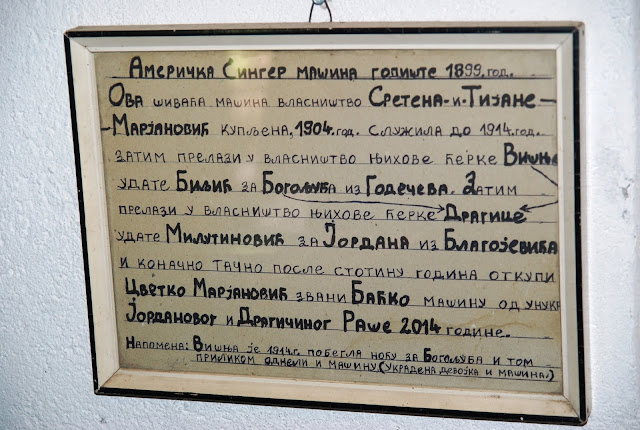 Америчка Сингер машина годиште 1899. год.
Ова шиваћа машина власништво Сретена-и-Тијане-
-Марјановић купљена, 1904. год. служила до 1914. год.
затим прелази у власништво њихове ћерке Вишње
удате Билић за Богољуба из Годечева. Затим
прелази у власништво њихове ћерке Драгице
удате Милутиновић за Јордана из Благојевића
и коначно тачно после стотину година откупи
Цветко Марјановић звани Баћко машину од унука
Јордановог и Драгичиног Раше 2014 године.
Напомена: Вишња је 1914. г. побегла ноћу за Богољуба и том
приликом однели и машину (украдена девојка и машина.)